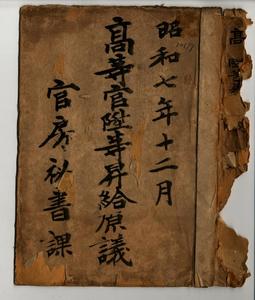 昭和七年十二月
高等官陞等昇給原議
官房秘書課
高等官